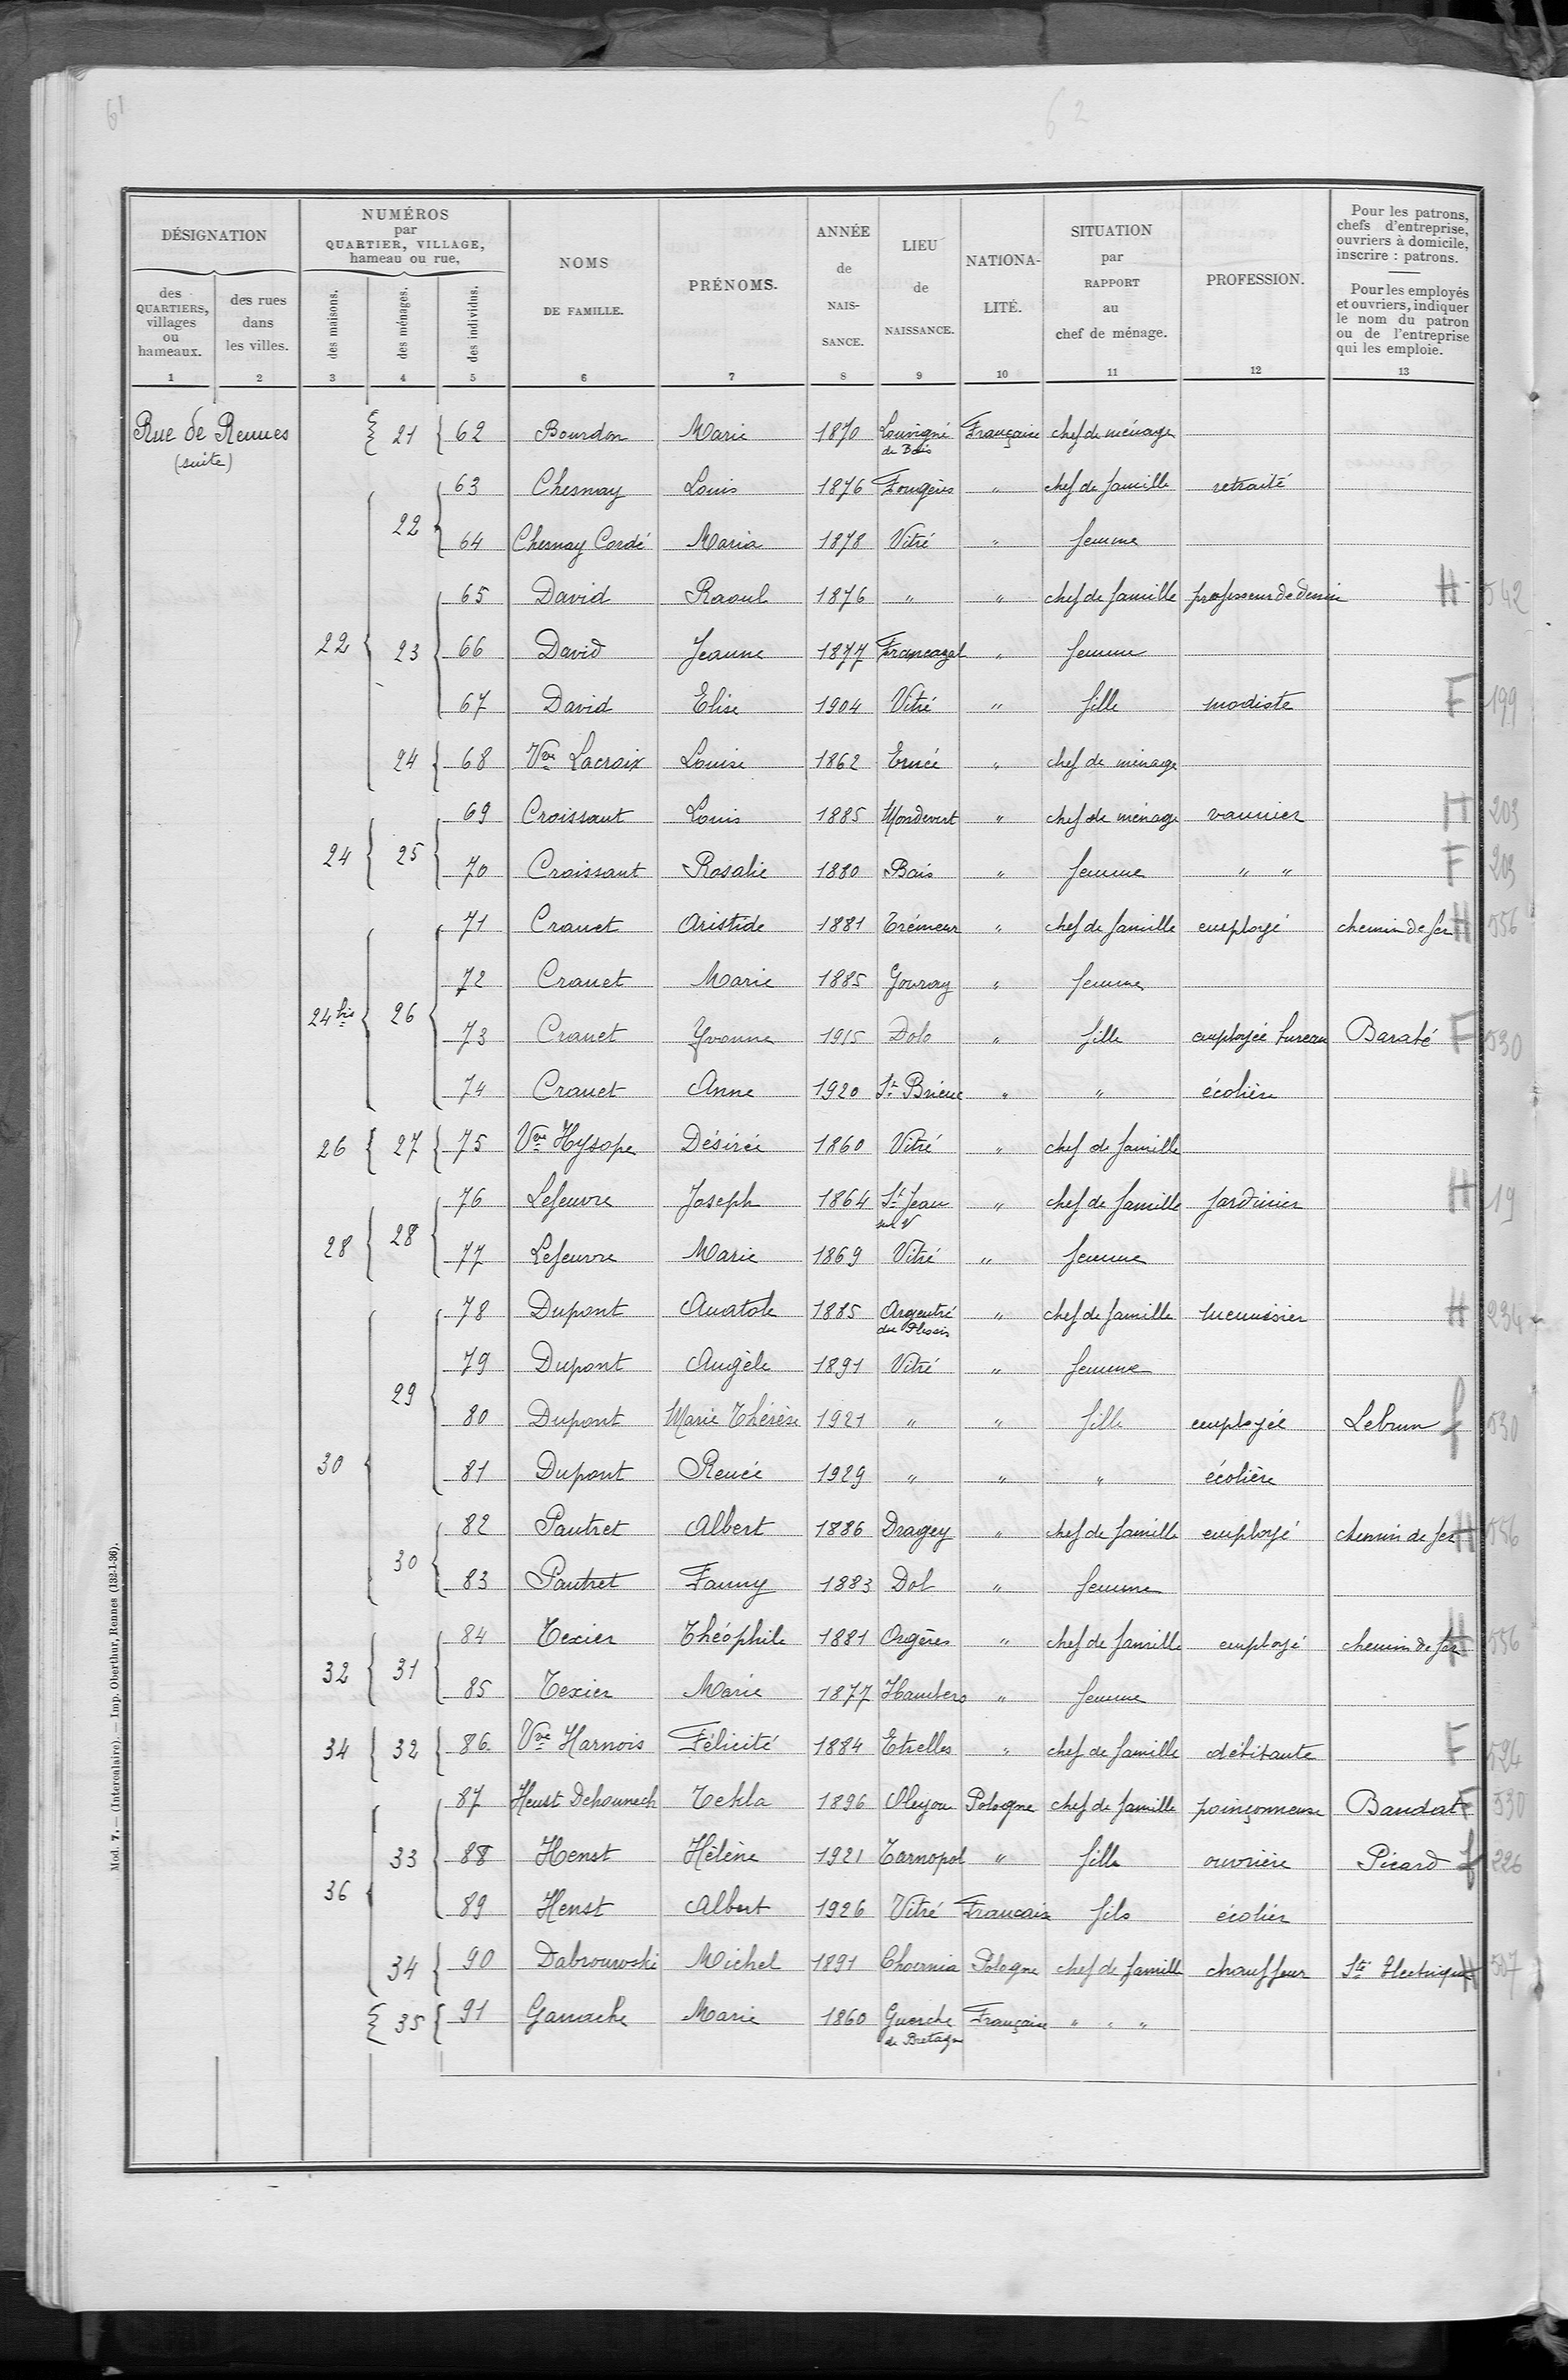 61
62
DÉSIGNATION
des QUARTIERS, villages ou hameaux.
des rues dans les villes.
NUMÉROS par QUARTIER, VILLAGE, hameau ou rue,
des maisons.
des ménages.
des individus.
NOMS DE FAMILLE.
PRÉNOMS.
ANNÉE de NAIS-SANCE.
LIEU de NAISSANCE.
NATIONA-LITÉ.
SITUATION par RAPPORT au chef de ménage.
PROFESSION.
Pour les patrons, chefs d'entreprise, ouvriers à domicile, inscrire : patrons.
Pour les employés et ouvriers, indiquer le nom du patron ou de l'entreprise qui les emploie.
1 2 3 4 5 6 7 8 9 10 11 12 13
Rue de Rennes (suite)
21 62 Bourdon Marie 1870 Louvigné de Bais Française chef de ménage
22 63 Chesnay Louis 1876 Fougères " chef de famille retraité
64 Chesnay Cordé Maria 1878 Vitré " femme
22 23 65 David Raoul 1876 " " chef de famille professeur de dessin H 542
66 David Jeanne 1877 Francazal " femme
67 David Elise 1904 Vitré " fille modiste F 199
24 68 Vve Lacroix Louise 1862 Ercé " chef de ménage
24 25 69 Croissant Louis 1885 Mondevert " chef de ménage vannier H 203
70 Croissant Rosalie 1880 Bais " femme " " F 203
24 bis 26 71 Crouet Aristide 1881 Trémeur " chef de famille employé chemin de fer H 556
72 Crouet Marie 1885 Gouray " femme
73 Crouet Yvonne 1915 Dolo " fille employée bureau Barabé F 530
74 Crouet Anne 1920 St Brieuc " " écolière
26 27 75 Vve Hysope Désirée 1860 Vitré " chef de famille
28 28 76 Lefeuvre Joseph 1864 St Jean sur V " chef de famille jardinier H 19
77 Lefeuvre Marie 1869 Vitré " femme
30 29 78 Dupont Anatole 1885 Argentré du Plessis " chef de famille menuisier H 234
79 Dupont Angèle 1891 Vitré " femme
80 Dupont Marie Thérèse 1921 " " fille employée Lebrun f 530
81 Dupont Renée 1929 " " " écolière
30 82 Pautret Albert 1886 Dragey " chef de famille employé chemin de fer H 556
83 Pautret Fanny 1883 Dol " femme
32 31 84 Texier Théophile 1881 Orgères " chef de famille employé chemin de fer H 556
85 Texier Marie 1877 Hambers " femme
34 32 86. Vve Harnois Félicité 1884 Etrelles " chef de famille débitante F 524
36 33 87 Henst Tekla 1896 Pologne chef de famille poinçonneuse Baudat F 530
88 Henst Hélène 1921 Tarnopol " fille ouvrière Picard f 226
89 Henst Albert 1926 Vitré Francais fils écolier
34 90 Dabrouwski Michel 1891 Pologne chef de famille chauffeur Sté Electrique H 507
35 91 Ganache Marie 1860 Guerche de Bretagne Française " " "
Mod. 7. — (Intercalaire). — Imp. Oberthur, Rennes (132-1-36).